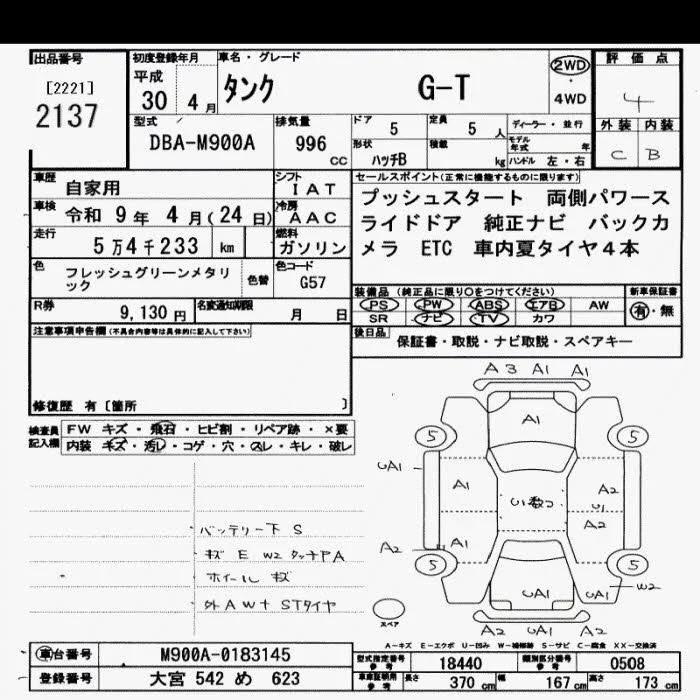 出品番号 初度登録年月 車名・グレード 評価点
[2221] 平成
2137 30 4月 タンク G-T 2WD・4WD 4
型式 排気量 ドア 5 定員 5人 ディーラー・並行 外装 内装
DBA-M900A 996cc 形状 ハッチB 積載 kg モデル年式 年 ハンドル 左・右 C B
車歴 自家用 シフト IAT セールスポイント(正常に機能するものに限ります)
車検 令和 9年 4月(24日) 冷房 AAC プッシュスタート 両側パワース
走行 5万4千233 km 燃料 ガソリン ライドドア 純正ナビ バックカ
メラ ETC 車内夏タイヤ4本
色 フレッシュグリーンメタリック 色替 色コード G57
装備品(純正品に限り○をつけてください) 新車保証書
R券 9,130円 名変通知期限 月 日 PS PW ABS エアB AW 有・無
SR ナビ TV カワ
注意事項申告欄(不具合内容等は具体的に記入して下さい) 後日品 保証書・取説・ナビ取説・スペアキー
修復歴 有〔箇所 〕
検査員記入欄 FW キズ・飛石・ヒビ割・リペア跡・×要
内装 キズ・汚レ・コゲ・穴・スレ・キレ・破レ
A3 A1 A1
A1
5 5
UA1 A1 U1数コ A2
U1
A2
A2 A1
5 5
UA1 UA1 W2
A2 UA1 A2
バッテリー下 S
キズ E W2 タッチPA
ホイール キズ
外AW+STタイヤ
スペア
A-キズ E-エクボ U-凹み W-補修跡 S-サビ C-腐食 XX-交換済
車台番号 M900A-0183145 型式指定番号参考 18440 類別区分番号参考 0508
登録番号 大宮 542 め 623 車庫証明用参考 長さ 370cm 幅 167cm 高さ 173cm